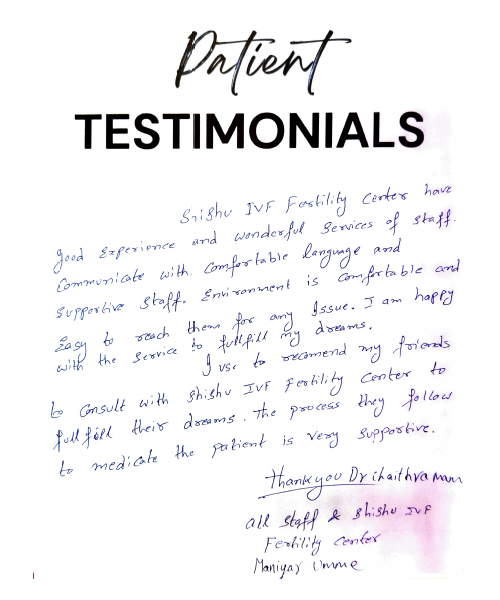 Patient
TESTIMONIALS
Srishu IVF Festility Center have
good Experience and wonderful Services of staff.
Communicate with comfortable language and
Supportive Staff. Environment is comfortable and
Easy to reach them for any Issue. I am happy
with the Service to fullfill my dreams.
I use to recomend my friends
to Consult with Shishu IVF Fertility Center to
full fill their dreams. The process they follow
to medicate the patient is very Supportive.
Thankyou Dr chaithra mam
all Staff & Shishu IVF
Fertility Center
Maniyar Umme